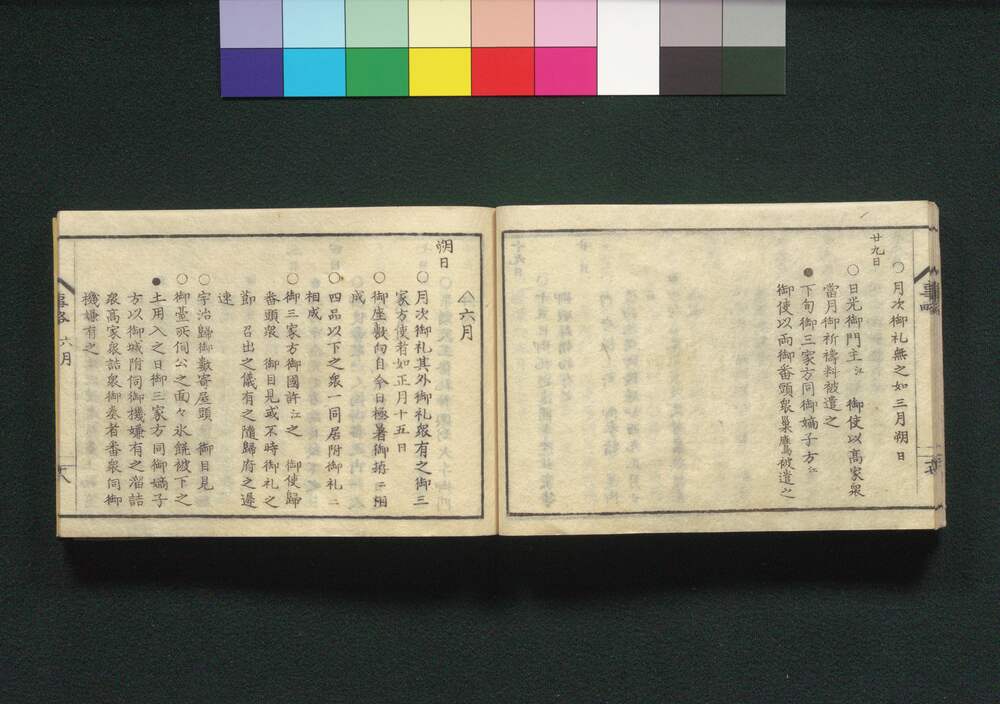 ○月次御礼無之如三月朔日
廿九日
○日光御門主江 御使以高家衆
當月御祈禱料被遣之
●下旬御三家方同御嫡子方江
御使以両御番頭衆巣鷹被遣之
六月
朔日
○月次御礼其外御礼衆有之御三
家方使者如正月十五日
○御座敷向自今日極暑御拵ニ相
成
○四品以下之衆一同居附御礼ニ
相成
○御三家方御國許江之 御使歸
番頭衆 御目見或不時御礼之
節 召出之儀有之隨歸府之遅
速
○宇治歸御數寄屋頭 御目見
○御臺所伺公之面々氷餅被下之
●土用入之日御三家方同御嫡子
方以御城附伺御機嫌有之溜詰
衆高家衆詰衆御奏者番衆伺御
機嫌有之
六月